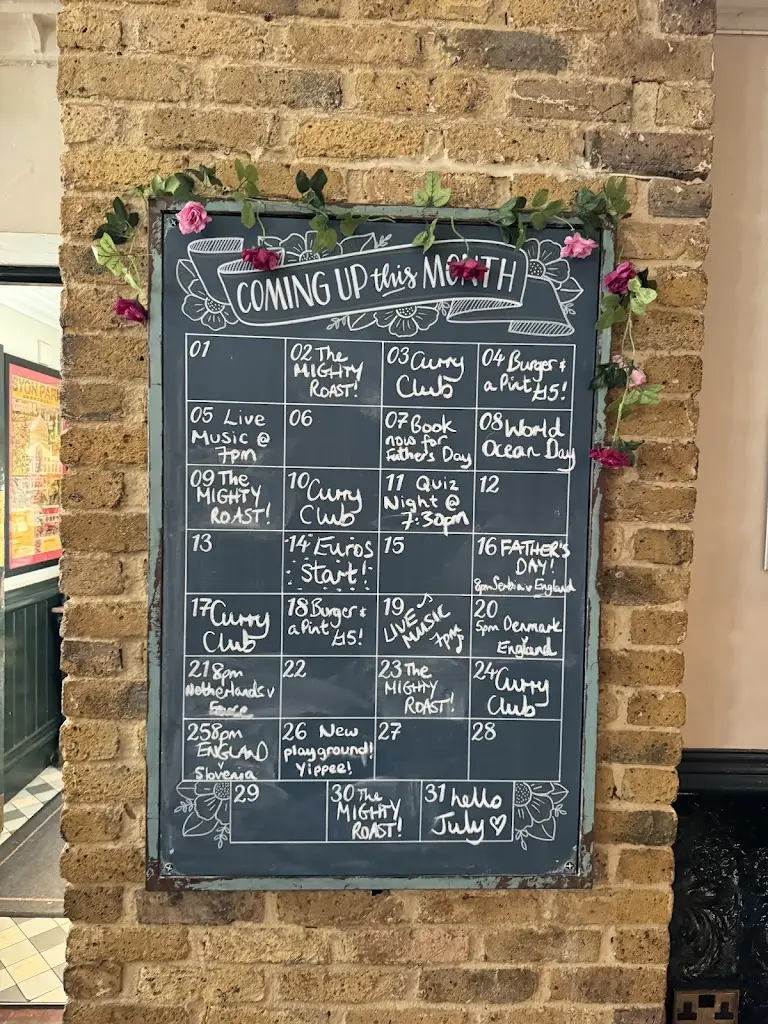 COMING UP this MONTH
01
02 The
MIGHTY
ROAST!
03 Curry
Club
04 Burger +
a Pint £15!
05 Live
Music @
7pm
06
07 Book
now for
Father's Day
08 World
Ocean Day
09 The
MIGHTY
ROAST!
10 Curry
Club
11 Quiz
Night @
7:30pm
12
13
14 Euros
Start!
15
16 FATHER'S
DAY!
8pm Serbia v England
17 Curry
Club
18 Burger +
a Pint £15!
19
LIVE
MUSIC
7pm
20
5pm Denmark
v
England
21 8pm
Netherlands v
22
23 The
MIGHTY
ROAST!
24 Curry
Club
25 8pm
ENGLAND
v
Slovenia
26 New
playground!
Yippee!
27
28
29
30 The
MIGHTY
ROAST!
31 hello
July ♡